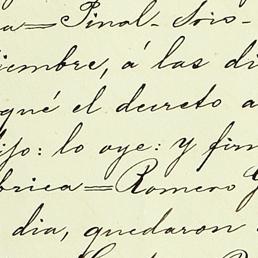 a=Pinal-Sois-
iembre, á las di
qué el decreto a
ijo: lo oye: y fir
brica=Romero G
dia, quedaron